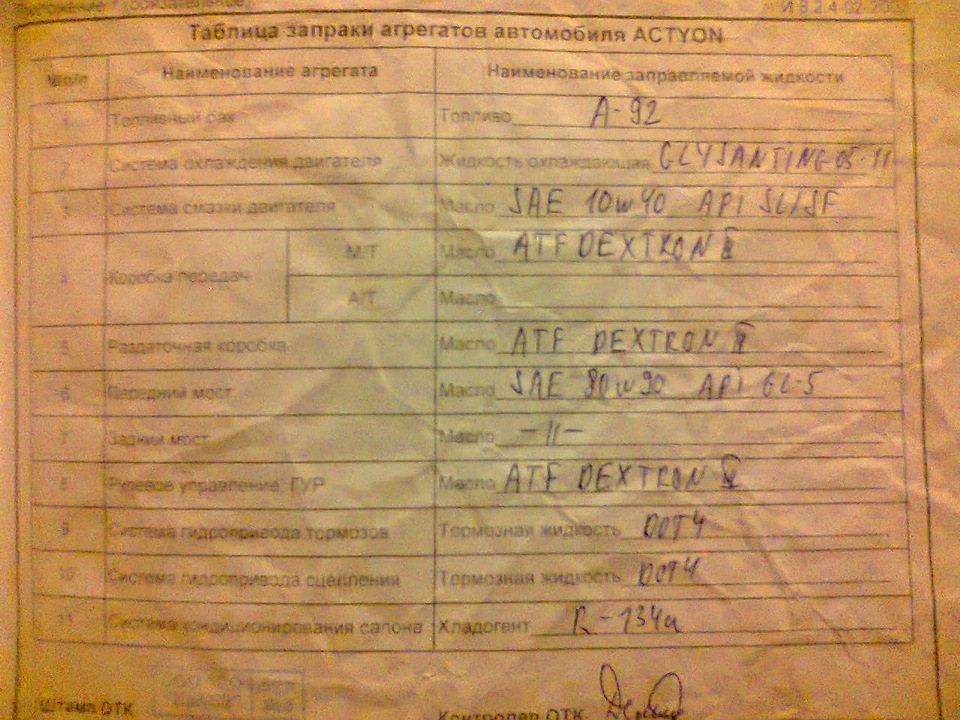 (обязательное)
И 8.2.4-02-20
Таблица запраки агрегатов автомобиля ACTYON
№п/п Наименование агрегата Наименование заправляемой жидкости
1 Топливный бак Топливо A-92
2 Система охлаждения двигателя Жидкость охлаждающая GLYSANTING-05-11
3 Система смазки двигателя Масло SAE 10w40 API SL/SF
4 Коробка передач М/Т Масло ATF DEXTRON II
А/Т Масло
5 Раздаточная коробка Масло ATF DEXTRON II
6 Передний мост Масло SAE 80w90 API GL-5
7 Задний мост Масло –11–
8 Рулевое управление, ГУР Масло ATF DEXTRON
9 Система гидропривода тормозов Тормозная жидкость DOT4
10 Система гидропривода сцепления Тормозная жидкость DOT4
11 Система кондиционирования салона Хладогент R-134a
Штамп ОТК Контролер ОТК